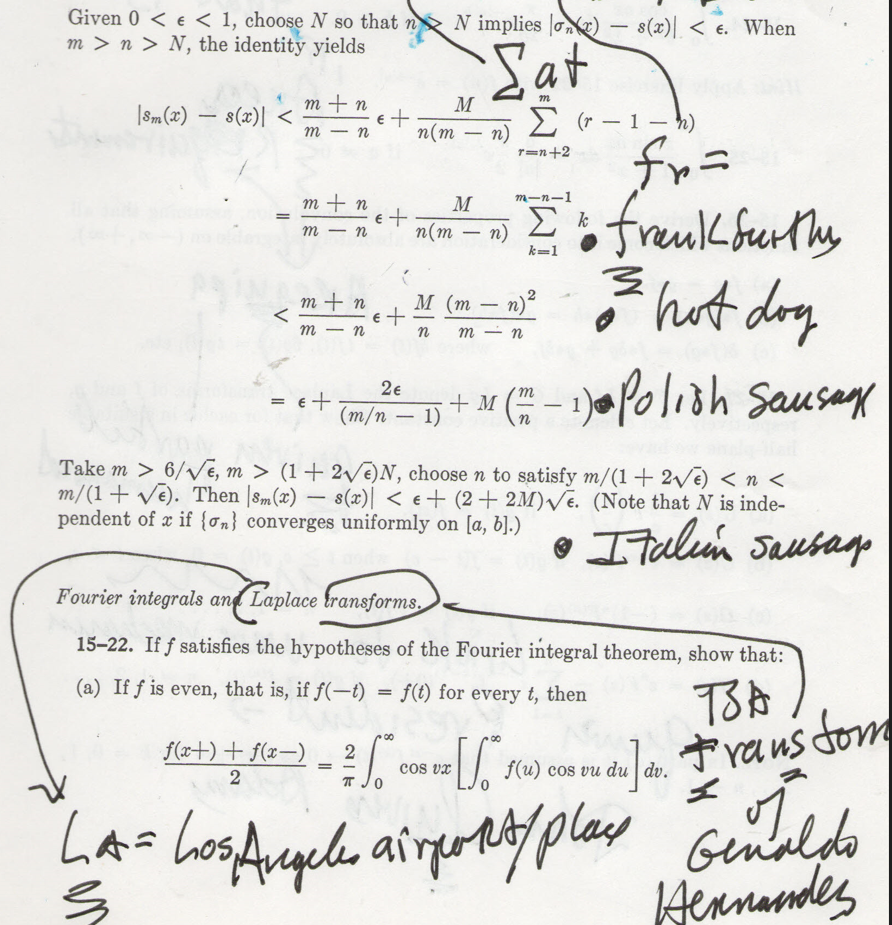 Given 0 < ϵ < 1, choose N so that n > N implies |σₙ(x) − s(x)| < ϵ. When
m > n > N, the identity yields
Σat
|sₘ(x) − s(x)| < (m + n)/(m − n) ϵ + M/(n(m − n)) Σ_{r=n+2}^{m} (r − 1 − n)
fr =
= (m + n)/(m − n) ϵ + M/(n(m − n)) Σ_{k=1}^{m−n−1} k
• frankfurths
< (m + n)/(m − n) ϵ + (M/n) (m − n)²/(m − n)
• hot dog
= ϵ + 2ϵ/(m/n − 1) + M (m/n − 1)
• Polish sausage
Take m > 6/√ϵ, m > (1 + 2√ϵ)N, choose n to satisfy m/(1 + 2√ϵ) < n <
m/(1 + √ϵ). Then |sₘ(x) − s(x)| < ϵ + (2 + 2M)√ϵ. (Note that N is inde-
pendent of x if {σₙ} converges uniformly on [a, b].)
• Italian sausage
Fourier integrals and Laplace transforms.
15–22. If f satisfies the hypotheses of the Fourier integral theorem, show that:
(a) If f is even, that is, if f(−t) = f(t) for every t, then
f(x+) + f(x−)/2 = 2/π ∫₀^∞ cos vx [∫₀^∞ f(u) cos vu du] dv.
TBA
Transform
of
Genaldo
Hernandes
LA = Los Angeles airport/place